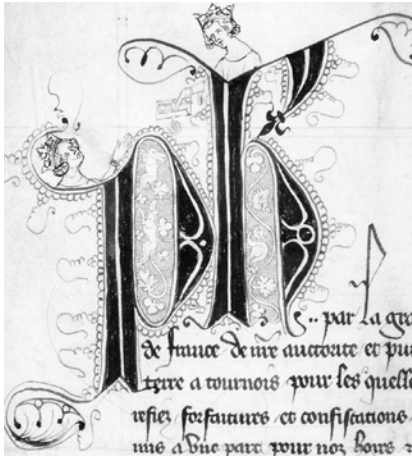 Ph s.. par la gra
de france de nre auctorite et pui
terre a tournois pour les quelle
refiez forfaitures et confiscations
mis a une part pour noz hoirs